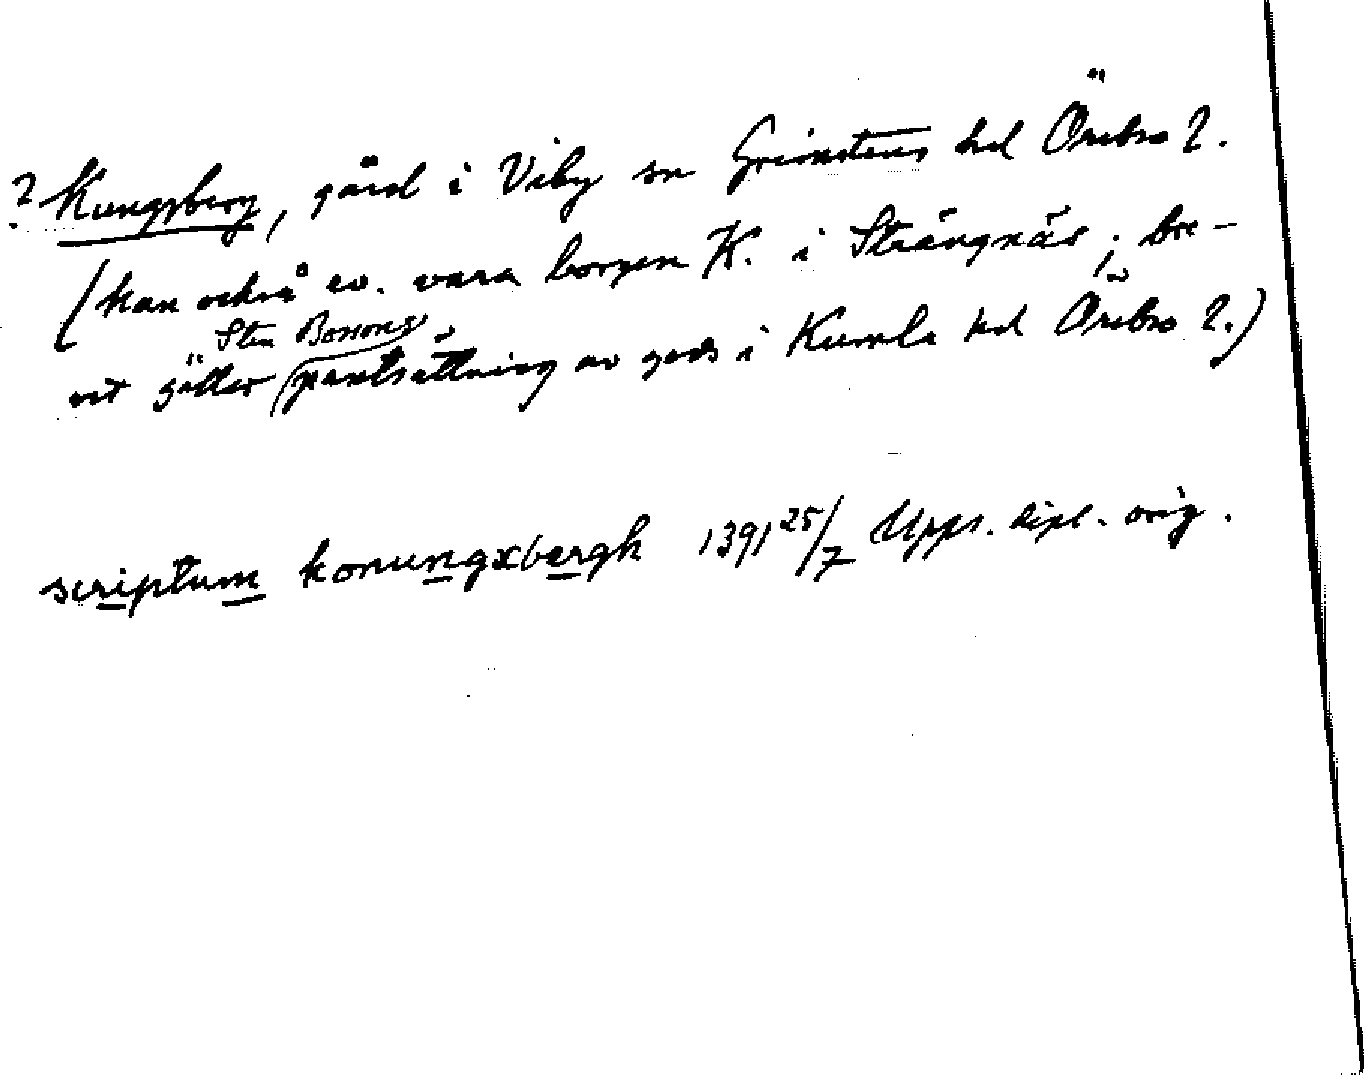 ? Kungsberg, gård i Viby sn Grimstens hd Örebro l.
(kan också ev. vara borgen K. i Strängnäs; bre-
vet gäller Sten Bossons pantsättning av gods i Kumla hd Örebro l.)
scriptum konungxbergh 1391 25/7 Upps. dipl. orig.